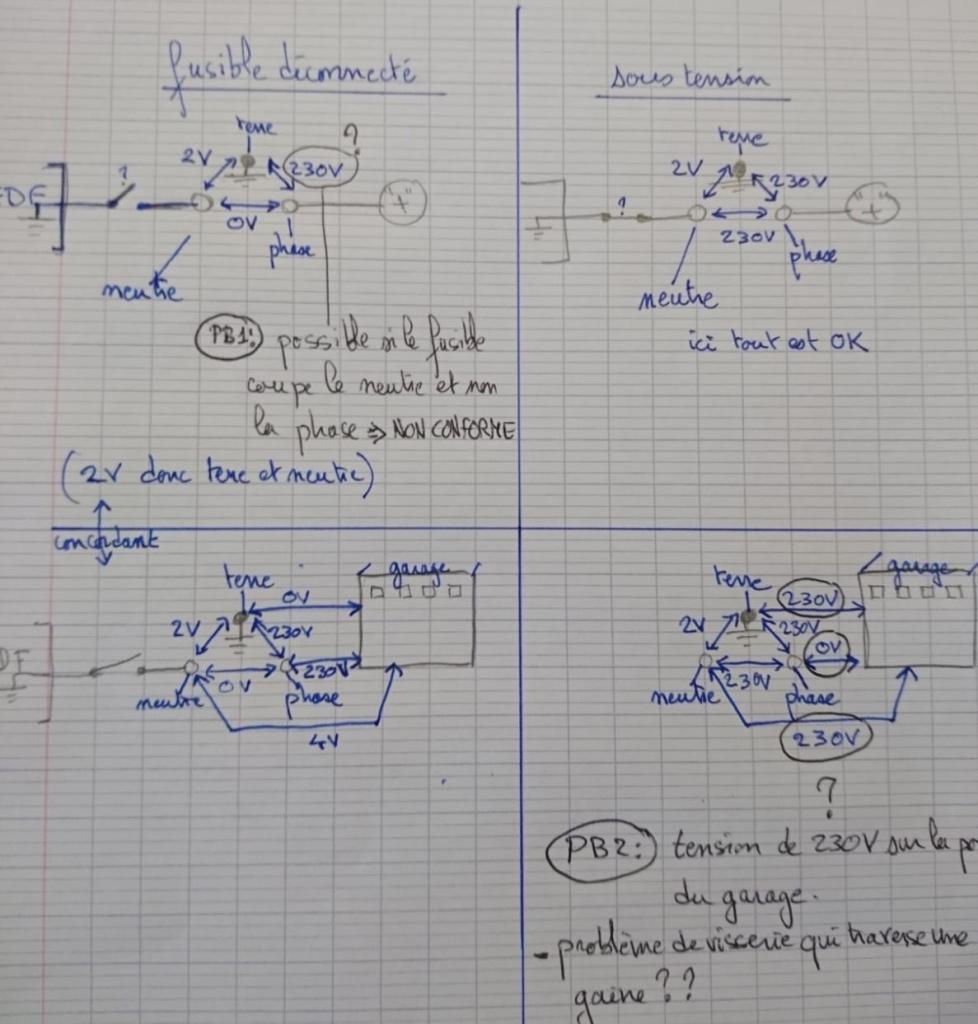 fusible déconnecté
terre
?
2V
230V
EDF
?
0V
"+"
phase
neutre
PB1: possible si le fusible
coupe le neutre et non
la phase ⇒ NON CONFORME
(2V donc terre et neutre)
concordant
sous tension
terre
2V
230V
?
230V
"+"
phase
neutre
ici tout est OK
terre
0V
garage
2V
230V
DF
0V
230V
neutre
phase
4V
terre
230V
garage
2V
230V
0V
230V
neutre
phase
230V
?
PB2: tension de 230V sur la po
du garage.
- problème de visserie qui traverse une
gaine ??